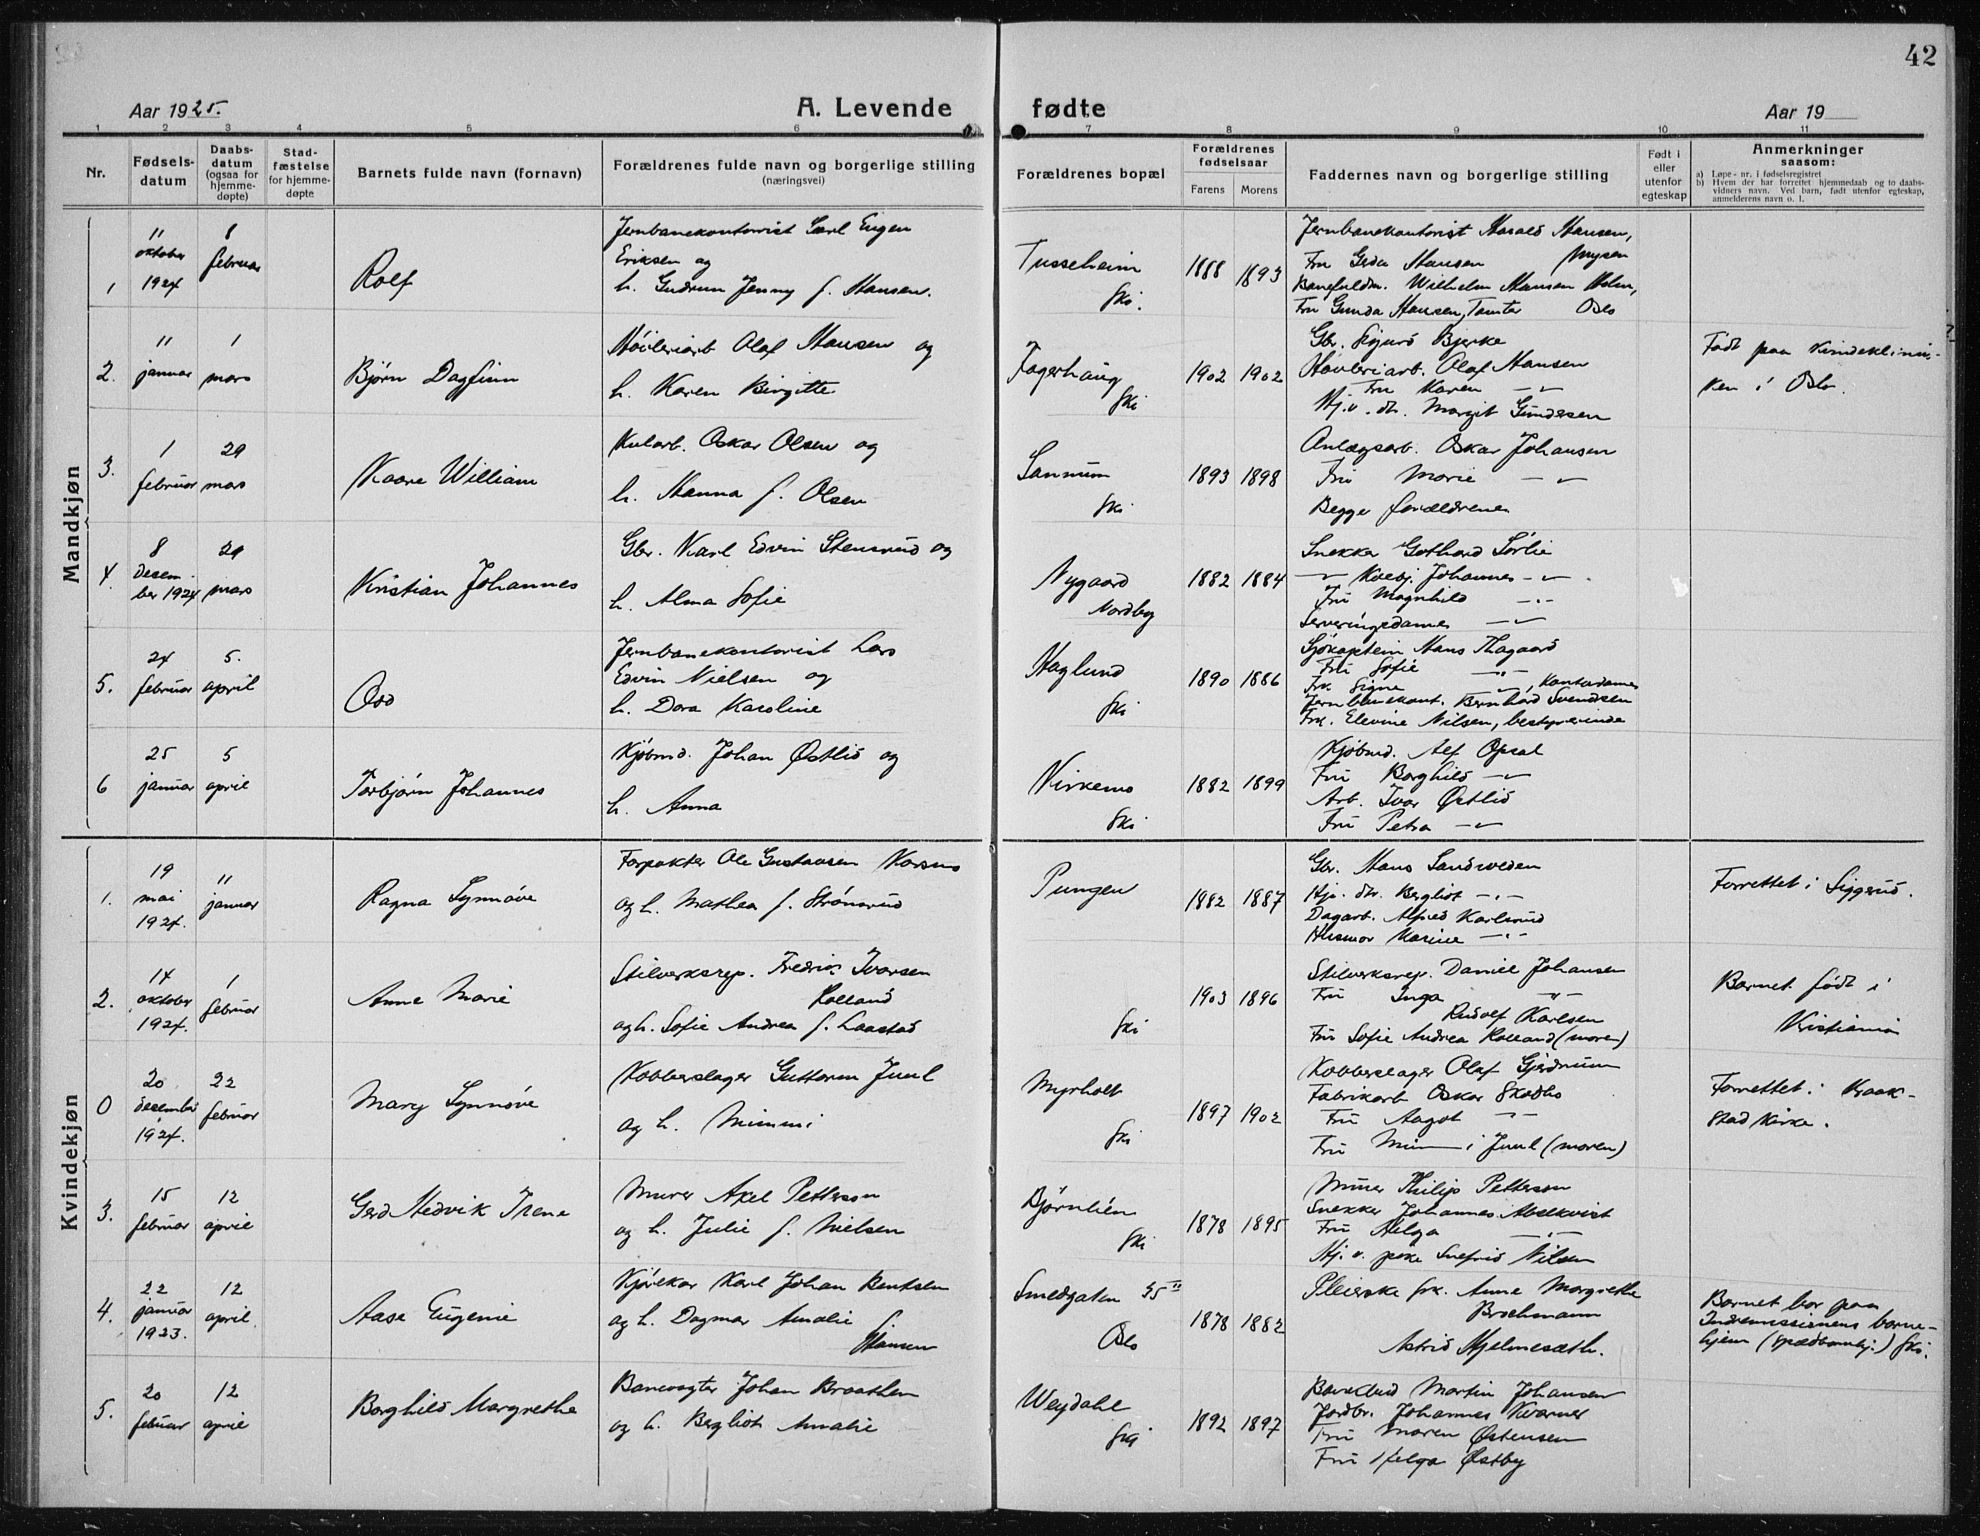 42
Aar 1925.
A. Levende
fødte
Aar 19
1 2 3 4 5 6 7 8 9 10 11
Nr.
Fødsels-
datum
Daabs-
datum
(ogsaa for
hjemme-
døpte)
Stad-
fæstelse
for hjemme-
døpte
Barnets fulde navn (fornavn)
Forældrenes fulde navn og borgerlige stilling
(næringsvei)
Forældrenes bopæl
Forældrenes
fødselsaar
Farens Morens
Faddernes navn og borgerlige stilling
Født i
eller
utenfor
egteskap
Anmerkninger
saasom:
a) Løpe-nr. i fødselsregistret
b) Hvem der har forrettet hjemmedaab og to daabs-
vidners navn. Ved barn, født utenfor egteskap,
anmelderens navn o. l.
Mandkjøn
1
11
oktober
1924
8
februar
Rolf
Jernbanekontorist Carl Eugen
Eriksen og
h. Gudrun Jenny f. Hansen.
Tusseheim
Ski.
1888 1893
Jernbanekontorist Harald Hansen,
Fru Gerda Hansen Mysen
Banefuldm. Wilhelm Hansen Holm,
Fru Gunda Hansen, Tomter Oslo
2.
11
januar
1
mars
Bjørn Dagfinn
Høvleriarb Olaf Hansen og
h. Karen Birgitte
Fagerhaug
Ski
1902 1902
Gbr. Sigurd Bjerke
Høvleriarb. Olaf Hansen
Fru Karen -"-
Hj.v. dtr. Margit Gundesen
Født paa Kvindeklinik-
ken i Oslo.
3.
1
februar
29
mars
Kaare William
Kularb. Oskar Olsen og
h. Hanna f. Olsen
Sannum
Ski
1893 1898
Anlægsarb. Oskar Johansen
Fru Marie -"-
Begge forældrene
4.
8
desem-
ber 1924
29
mars
Kristian Johannes
Gbr. Karl Edvin Stensrud og
h. Alma Sofie
Nygaard
Nordby
1882 1884
Snekker Gothard Sørlie
-"- Johannes -"-
Fru Magnhild -"-
Serveringsdame -"-
5.
24
februar
5.
april
Odd
Jernbanekontorist Lars
Edvin Nielsen og
h. Dora Karoline
Haglund
Ski
1890 1886
Sjökaptein Hans Thagaard
Fru Sofie -"-
Frk Signe -"-, Kontordame
Jernbanekont. Bernhard Svendsen
Frk. Elevine Nilsen, bestyrerinde
6
25
januar
5
april
Torbjørn Johannes
Kjøbmd. Johan Østlid og
h. Anna
Kirkemo
Ski
1882 1899
Kjøbmd. Alf Opsal
Fru Borghild -"-
Arb. Ivar Østlid
Fru Petra -"-
Kvindekjøn
1.
19
mai
1924.
11
januar
Ragna Synnøve
Forpakter Ole Gustavsen
og h. Mathea f. Strønsrud
Pungen
1882 1887
Gbr. Hans Sandsveden
Hj. dtr. Bergliot -"-
Dagarb. Alfred Karlsrud
Husmor Karine -"-
Forrettet i Siggerud.
2.
14
oktober
1924.
1
februar
Anne Marie
Stilverksrep. Fredrik Ivarsen
Rolland
og h. Sofie Andrea f. Laastad
Ski
1903 1896
Stilverksrep. Daniel Johansen
Fru Inga -"-
Rudolf Karlsen
Fru Sofie Andrea Rolland (moren)
Barnet født i
Kristiania
0
20
desember
1924.
22
februar
Mary Synnøve
Kobberslager Guttorm Juul
og h. Mimmi
Myrholt
Ski
1897 1902
Kobberslager Olaf Gjerdrum
Fabrikarb Oskar Skodbo
Fru Aagot -"-
Fru Mimmi Juul (moren)
Forrettet i Kraak-
stad Kirke.
3.
15
februar
12
april
Gerd Hedvik Irene
Murer Axel Petterson
og h. Julie f. Nielsen
Bjørnlien
Ski
1878 1895
Murer Philip Petterson
Snekker Johannes Abelkvist
Fru Helga -"-
Hj. v. pike Snefrid Nilsen
4.
22
januar
1923.
12
april
Aase Eugenie
Kjørekar Karl Johan Bentsen
og h. Dagmar Amalie
Hansen
Smedgaten 35 II
Oslo
1878 1882
Pleierske frk. Anne Margrethe
Brochmann
Astrid Hjelmesæth.
Barnet bor paa
Indremissionens barne-
hjem (spædbarnhj.) Ski.
5.
20
februar
12
april
Borghild Margrethe
Banevogter Johan Braathen
og h. Bergliot Amalie
Weydahl
Ski
1892 1897
Martin Johansen
Jordbr. Johannes Kværner
Fru Maren Østensen
Fru Helga Østby